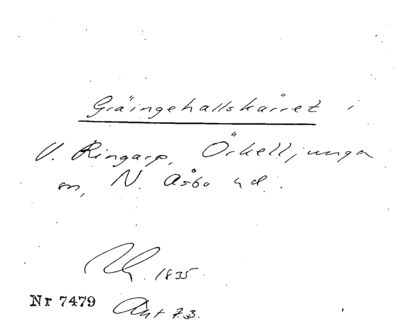 Gräingehallskärret i
V. Ringarp, Örkelljunga
sn, N. Åsbo hd.
1835
Nr 7479